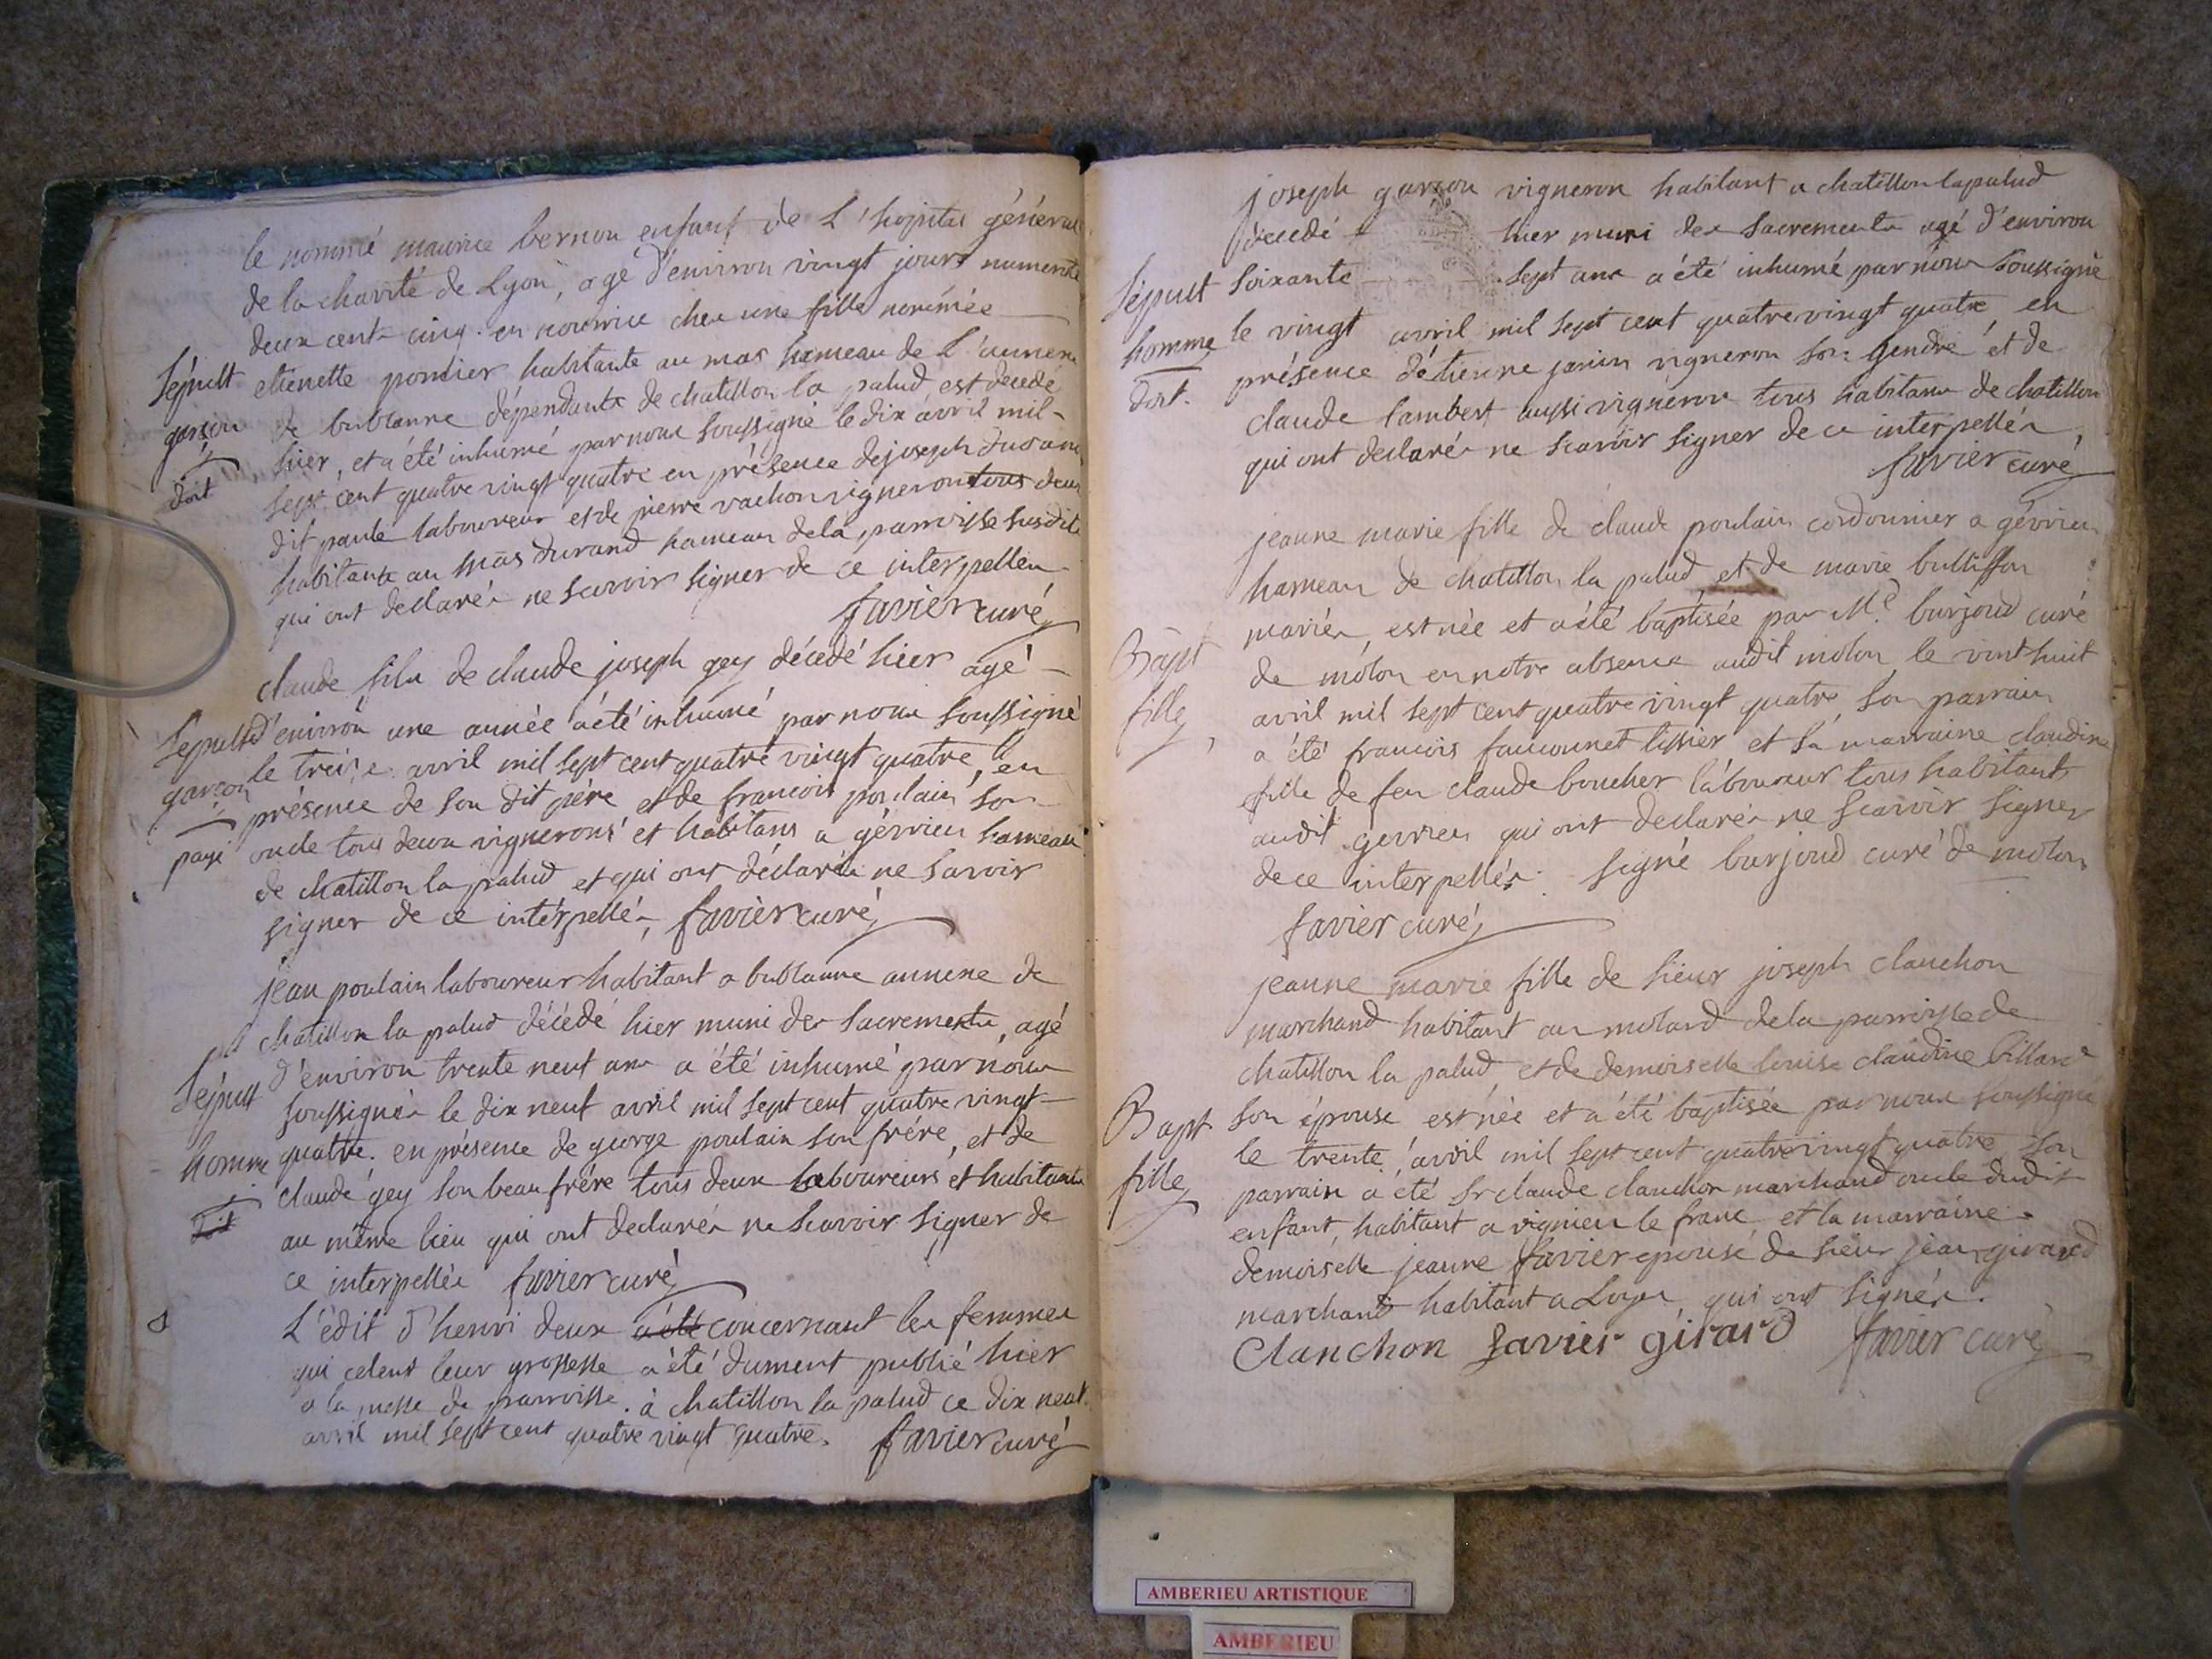 le nommé maurice bernon enfant de L'hopital général
de la charité de Lyon, agé d'environ vingt jours numerotté
deux cents cinq. en nourrice chez une fille nommée
Sépult etienette pommier habitante au mas hameau de L'annexe
garçon de bublanne dépendante de chatillon la palud est decedé
doit hier, et a été inhumé par nous soussigné le dix avril mil
sept cent quatre vingt quatre en présence de joseph
dit paule laboureur et de pierre vachon vigneron tous deux
habitants au mas durand hameau de la parroisse susdite
qui ont declarés ne scavoir signer de ce interpellés
favier curé
claude fils de claude joseph gey décédé hier agé
Sepult d'environ une année a été inhumé par nous soussigné
garcon le treize avril mil sept cent quatre vingt quatre, en
présence de son dit père et de francois poulain son
payé oncle tous deux vignerons et habitans a gévrieu hameau
de chatillon la palud et qui ont déclarés ne savoir
signer de ce intérpellés, favier curé
jean poulain laboureur habitant a bublanne annexe de
chatillon la palud décédé hier muni des sacrements, agé
Sépult d'environ trente neuf ans a été inhumé par nous
soussignés le dix neuf avril mil sept cent quatre vingt
homme quatre. en présence de george poulain son frére, et de
doit claude gey son beau frére tous deux laboureurs et habitants
au même lieu qui ont declarés ne scavoir signer de
ce interpellés favier curé
L'édit d'henri deux a été concernant les femmes
qui celent leur grossesse a été dument publié hier
a la messe de parroisse. à chatillon la palud ce dix neuf
avril mil sept cent quatre vingt quatre. favier curé
joseph garçon vigneron habitant a chatillon lapalud
decedé hier muni des sacrements agé d'environ
Sépult soixante sept ans a été inhumé par nous soussigné
homme le vingt avril mil sept cent quatre vingt quatre en
doit. présence d'étienne janin vigneron son gendre et de
claude lambert aussi vigneron tous habitans de chatillon
qui ont declarés ne scavoir signer de ce interpellés,
favier curé
jeanne marie fille de claude poulain cordonnier a gévrieu
hameau de chatillon la palud et de marie bulliffon
mariés, est née et a été baptisée par Me. burjoud curé
Bapt de molon en notre absence audit molon le vint huit
fille, avril mil sept cent quatre vingt quatre, son parrain
a été francois fauconnet tissier et sa marraine claudine
fille de feu claude boucher laboureur tous habitants
audit gevrieu qui ont declarés ne scavoir signer
de ce interpellés. signé burjoud curé de molon
favier curé
jeanne marie fille de sieur joseph clanchon
marchand habitant au molard de la parroisse de
chatillon la palud, et de demoiselle louise claudine billard
Bapt son épouse est née et a été baptisée par nous soussigné
fille le trente avril mil sept cent quatre vingt quatre, son
parrain a été sr claude clanchon marchand oncle dudit
enfant, habitant a vignieu le franc et la marraine
demoiselle jeanne favier epouse de sieur jean girard
marchand habitant a Loyes, qui ont signés.
Clanchon favier girard favier curé
AMBERIEU ARTISTIQUE
AMBERIEU